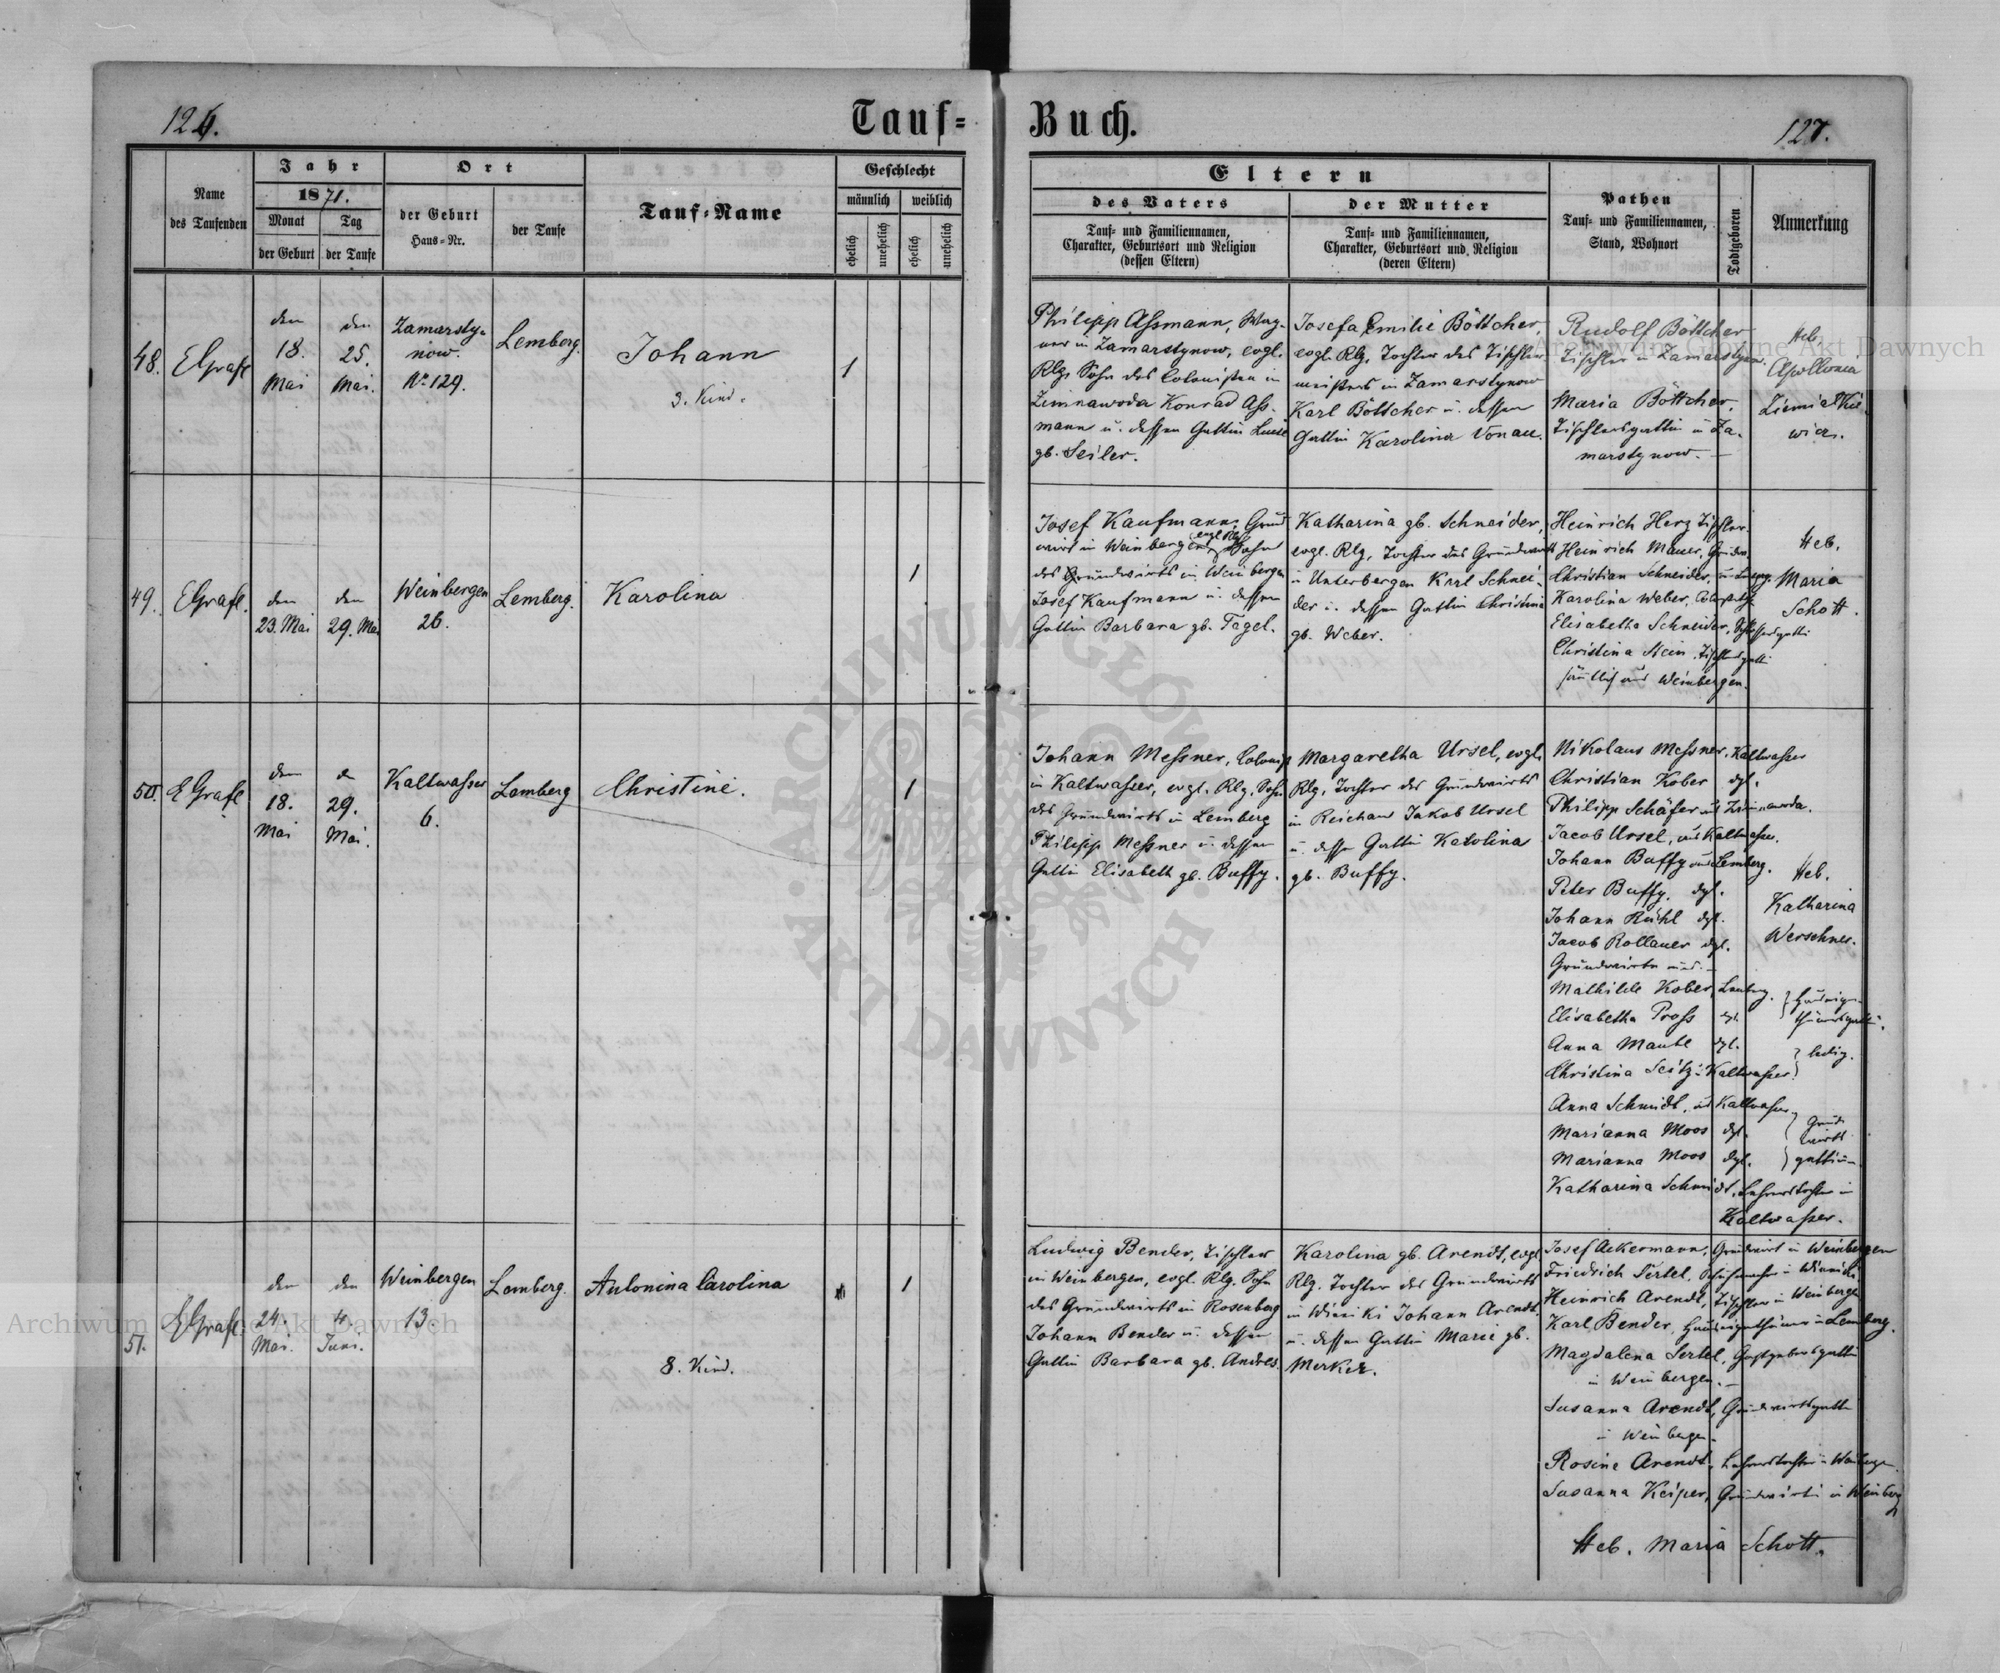 126.
Tauf=
Name
des Taufenden
Jahr
1871.
Monat
der Geburt
Tag
der Taufe
Ort
der Geburt
Haus=Nr.
der Taufe
Tauf=Name
Geschlecht
männlich
weiblich
ehelich
unehelich
ehelich
unehelich
48.
EGrafl
den
18.
Mai
den
25.
Mai.
Zamarsty=
now.
No 129.
Lemberg.
Johann
3. Kind.
1
49.
EGrafl.
den
23. Mai
den
29. Mai
Weinbergen
26.
Lemberg.
Karolina
1
50.
EGrafl
den
18.
Mai
29.
Mai.
Kaltwasser
6.
Lemberg
Christine.
1
51.
EGrafl
den
24.
Mai.
den
4.
Juni.
Weinbergen
13
Lemberg.
Antonina Carolina
8. Kind.
1
Buch.
127.
Eltern
des Vaters
Tauf= und Familiennamen,
Charakter, Geburtsort und Religion
(dessen Eltern)
der Mutter
Tauf= und Familiennamen,
Charakter, Geburtsort und Religion
(deren Eltern)
Pathen
Tauf= und Familiennamen,
Stand, Wohnort
Todtgeboren
Anmerkung
Philipp Aßmann, Wag-
ner in Zamarstynow, evgl.
Rlg. Sohn des Colonisten in
Zimnawoda Konrad Aß-
mann u. dessen Gattin Luise
gb. Seiler.
Josefa Emilie Böttcher,
evgl. Rlg. Tochter des Tischler-
meisters in Zamarstynow
Karl Böttcher u. dessen
Gattin Karolina Vonau.
Rudolf Böttcher
Tischler in Zamarstynow.
Maria Böttcher,
Tischlersgattin in Za-
marstynow.
Heb.
Apollonia
Ziemiałkie-
wicz.
Josef Kaufmann, Grund
wirt in Weinbergen, evgl. Rlg. Sohn
des Grundwirts in Weinbergen
Josef Kaufmann u. dessen
Gattin Barbara gb. Tagel.
Katharina gb. Schneider,
evgl. Rlg. Tochter des Grundwirts
in Unterbergen Karl Schnei-
der u. dessen Gattin Christina
gb. Weber.
Heinrich Herz Tischler.
Heinrich Mauer,
Christian Schneider,
Karolina Weber,
Elisabetha Schneider,
Christina Stein, Tischlersgattin
sämtlich aus Weinbergen.
Heb.
Maria
Schott.
Johann Meßner, Colonist
in Kaltwasser, evgl. Rlg. Sohn
des Grundwirts in Lemberg
Philipp Meßner u. dessen
Gattin Elisabeth gb. Buffy.
Margaretha Ursel, evgl.
Rlg. Tochter des Grundwirts
in Reichau Jakob Ursel
u. dessen Gattin Karolina
gb. Buffy.
Nikolaus Meßner, Kaltwasser
Christian Kober dgl.
Philipp Schäfer aus Zimnawoda.
Jacob Ursel, aus Kaltwasser.
Johann Buffy aus Lemberg.
Peter Buffy, dgl.
Johann Rühl dgl.
Jacob Rollauer dgl.
Grundwirte und
Mathilde Kober, Lemberg.
Elisabetha Pross dgl.
Anna Mautl dgl.
ledig.
Christina Seitz in Kaltwasser
Anna Schmidt, aus Kaltwasser
Marianna Moos dgl.
Grund
wirts
Marianna Moos dgl.
gattinen
Katharina Schmidt, Lehrerstochter in
Kaltwasser.
Heb.
Katharina
Werschner.
Ludwig Bender, Tischler
in Weinbergen, evgl. Rlg. Sohn
des Grundwirts in Rosenberg
Johann Bender u. dessen
Gattin Barbara gb. Andres.
Karolina gb. Arendt, evgl.
Rlg. Tochter des Grundwirts
in Winniki Johann Arendt
u. dessen Gattin Marie gb.
Merker.
Josef Ackermann, Grundwirt in Weinbergen
Friedrich Sertel, Schuhmacher in Winniki,
Heinrich Arendt, Tischler in Weinbergen
Karl Bender, Hauseigenthümer in Lemberg.
Magdalena Sertel, Gastgebersgattin
in Weinbergen.
Susanna Arendt, Grundwirtsgattin
in Weinbergen.
Rosine Arendt, Lehrerstochter in Weinbergen.
Susanna Keiper, Grundwirtin in Weinberg
Heb. Maria Schott.
Archiwum Główne Akt Dawnych
Archiwum Główne Akt Dawnych
ARCHIWUM GŁÓWNE · AKT DAWNYCH ·